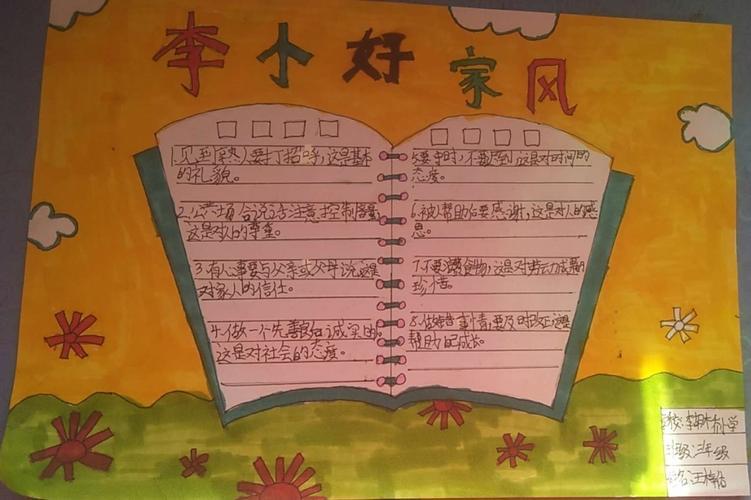 李小好家风
1.见到熟人要打招呼,这是基本
的礼貌。
2.公共场合说话注意控制音量,
这是对人的尊重。
3.有心事要与父亲或父母说,这是
对家人的信任。
4.做一个先善良和诚实的
这是对社会的态度。
5.要守时,不要迟到,这是对时间的
态度。
6.被人帮助后要感谢,这是对人的感
恩。
7.不要浪费食物,这是对劳动成果的
珍惜。
8.做错事情要及时改正,这是
帮助自己成长。
学校:李 小学
班级:三年级
姓名:汪梓